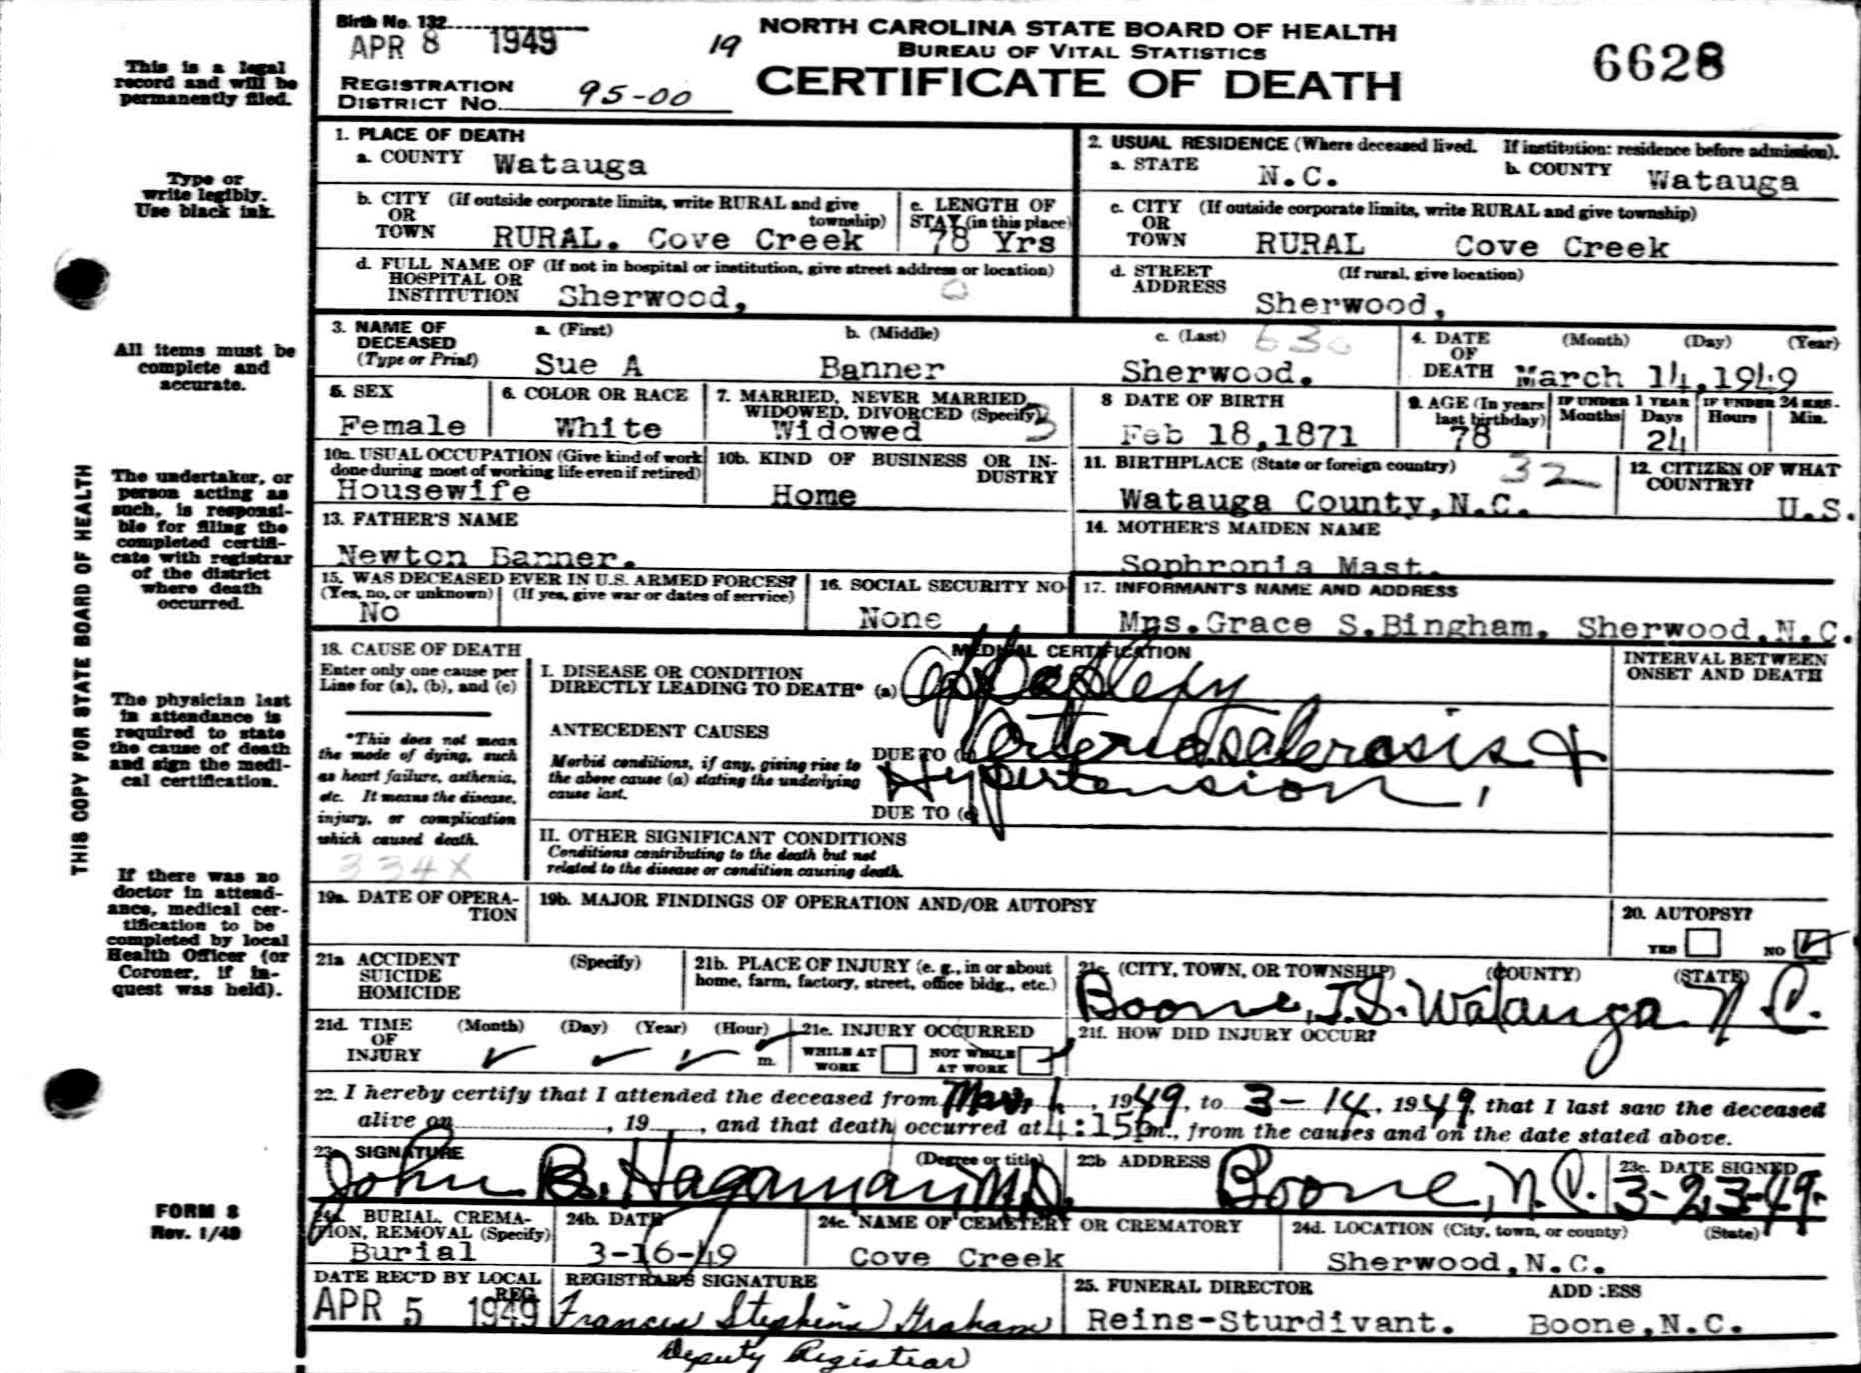 Birth No. 132
APR 8 1949
19
NORTH CAROLINA STATE BOARD OF HEALTH
BUREAU OF VITAL STATISTICS
CERTIFICATE OF DEATH
6628
REGISTRATION
DISTRICT No. 95-00
This is a legal
record and will be
permanently filed.
Type or
write legibly.
Use black ink.
All items must be
complete and
accurate.
The undertaker, or
person acting as
such, is responsi-
ble for filing the
completed certifi-
cate with registrar
of the district
where death
occurred.
The physician last
in attendance is
required to state
the cause of death
and sign the medi-
cal certification.
If there was no
doctor in attend-
ance, medical cer-
tification to be
completed by local
Health Officer (or
Coroner, if in-
quest was held).
FORM 8
Rev. 1/49
THIS COPY FOR STATE BOARD OF HEALTH
1. PLACE OF DEATH
a. COUNTY Watauga
b. CITY (If outside corporate limits, write RURAL and give
OR township)
TOWN RURAL. Cove Creek
c. LENGTH OF
STAY (in this place)
78 Yrs
d. FULL NAME OF (If not in hospital or institution, give street address or location)
HOSPITAL OR
INSTITUTION Sherwood,
2. USUAL RESIDENCE (Where deceased lived. If institution: residence before admission).
a. STATE N.C. b. COUNTY Watauga
c. CITY (If outside corporate limits, write RURAL and give township)
OR
TOWN RURAL Cove Creek
d. STREET (If rural, give location)
ADDRESS Sherwood,
3. NAME OF DECEASED (Type or Print)
a. (First) b. (Middle) c. (Last)
Sue A Banner Sherwood.
4. DATE OF DEATH (Month) (Day) (Year)
March 14,1949
5. SEX
Female
6. COLOR OR RACE
White
7. MARRIED, NEVER MARRIED,
WIDOWED, DIVORCED (Specify)
Widowed 3
8 DATE OF BIRTH
Feb 18,1871
9. AGE (In years
last birthday)
78
IF UNDER 1 YEAR
Months Days
24
IF UNDER 24 HRS.
Hours Min.
10a. USUAL OCCUPATION (Give kind of work
done during most of working life even if retired)
Housewife
10b. KIND OF BUSINESS OR IN-
DUSTRY
Home
11. BIRTHPLACE (State or foreign country) 32
Watauga County,N.C.
12. CITIZEN OF WHAT
COUNTRY?
U.S.
13. FATHER'S NAME
Newton Banner.
14. MOTHER'S MAIDEN NAME
Sophronia Mast.
15. WAS DECEASED EVER IN U.S. ARMED FORCES?
(Yes, no, or unknown) (If yes, give war or dates of service)
No
16. SOCIAL SECURITY NO
None
17. INFORMANT'S NAME AND ADDRESS
Mrs.Grace S.Bingham, Sherwood,N.C.
18. CAUSE OF DEATH
Enter only one cause per
Line for (a), (b), and (c)
*This does not mean
the mode of dying, such
as heart failure, asthenia,
etc. It means the disease,
injury, or complication
which caused death.
334X
MEDICAL CERTIFICATION
I. DISEASE OR CONDITION
DIRECTLY LEADING TO DEATH* (a) Apoplexy
ANTECEDENT CAUSES
Morbid conditions, if any, giving rise to
the above cause (a) stating the underlying
cause last.
DUE TO (b) Arteriosclerosis &
Hypertension,
DUE TO (c)
II. OTHER SIGNIFICANT CONDITIONS
Conditions contributing to the death but not
related to the disease or condition causing death.
INTERVAL BETWEEN
ONSET AND DEATH
19a. DATE OF OPERA-
TION
19b. MAJOR FINDINGS OF OPERATION AND/OR AUTOPSY
20. AUTOPSY?
YES NO
21a ACCIDENT (Specify)
SUICIDE
HOMICIDE
21b. PLACE OF INJURY (e. g., in or about
home, farm, factory, street, office bldg., etc.)
21c. (CITY, TOWN, OR TOWNSHIP) (COUNTY) (STATE)
Boone, Watauga N.C.
21d. TIME (Month) (Day) (Year) (Hour)
OF
INJURY m.
21e. INJURY OCCURRED
WHILE AT WORK NOT WHILE AT WORK
21f. HOW DID INJURY OCCUR?
22. I hereby certify that I attended the deceased from Mar, 1, 1949, to 3-14, 1949, that I last saw the deceased
alive on , 19 , and that death occurred at 4:15 pm., from the causes and on the date stated above.
23a SIGNATURE (Degree or title)
John B. Hagaman M.D.
23b ADDRESS
Boone, N.C.
23c. DATE SIGNED
3-23-49.
24a. BURIAL, CREMA-
TION, REMOVAL (Specify)
Burial
24b. DATE
3-16-49
24c. NAME OF CEMETERY OR CREMATORY
Cove Creek
24d. LOCATION (City, town, or county) (State)
Sherwood,N.C.
DATE REC'D BY LOCAL
REG.
APR 5 1949
REGISTRAR'S SIGNATURE
Frances Stephens Graham
Deputy Registrar
25. FUNERAL DIRECTOR ADD:ESS
Reins-Sturdivant. Boone,N.C.